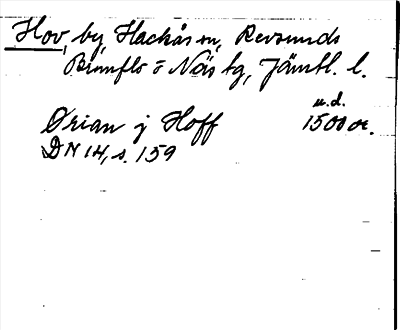 Hov, by, Hackås sn, Revsunds
Brunflo o Näs tg, Jämtl. l.
u.d.
Ørian j Hoff 1500 (?).
DN 14, s. 159